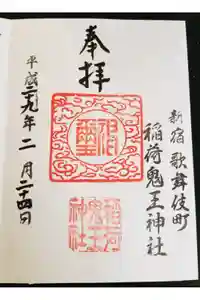 奉拝
新宿歌舞伎町
稲荷鬼王神社
平成二十九年二月二十四日
稲荷
鬼王
神社